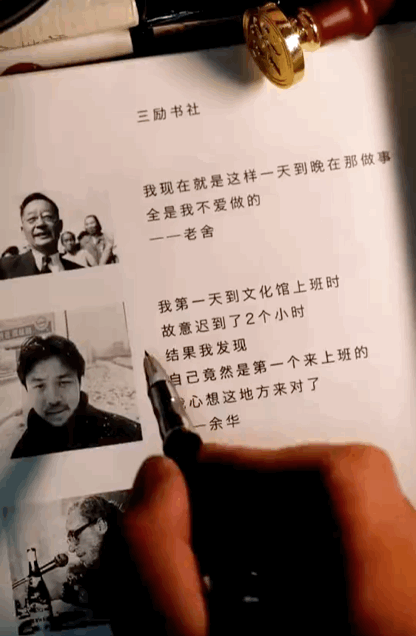 三励书社
我现在就是这样一天到晚在那做事
全是我不爱做的
——老舍
我第一天到文化馆上班时
故意迟到了2个小时
结果我发现
自己竟然是第一个来上班的
心想这地方来对了
—余华